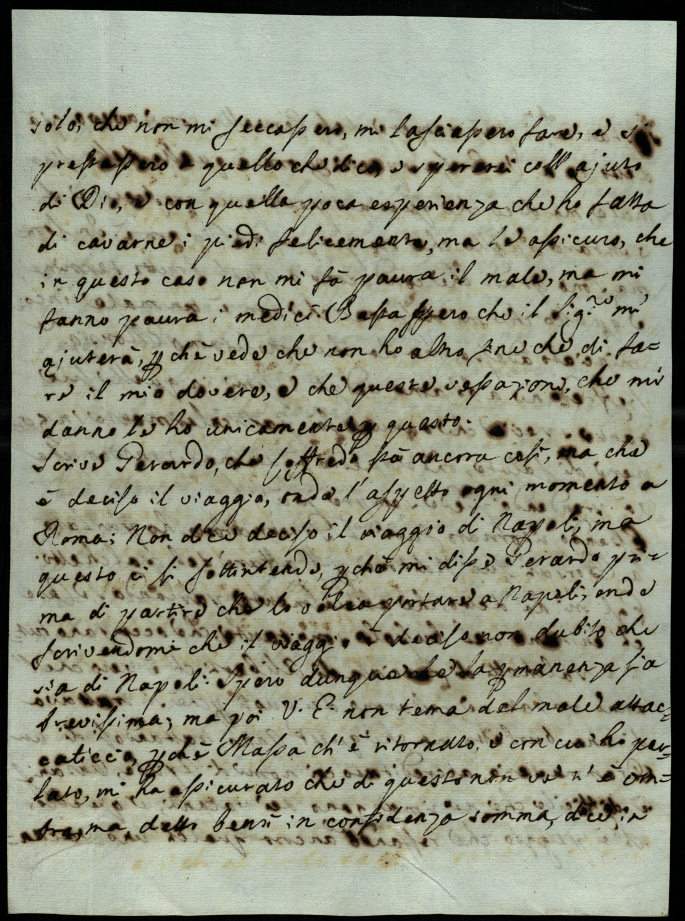 solo, che non mi seccassero, mi lasciassero fare, e si
prestassero a quello che dico, e spererei coll' ajuto
di Dio, e con quella poca esperienza che ho fatta
di cavarne i piedi felicemente, ma le assicuro, che
in questo caso non mi fà paura il male, ma mi
fanno paura i medici. Basta spero che il Sig.re mi
ajuterà, pchè vede che non ho altro fine che di fa-
re il mio dovere, e che queste vessazioni, che mi
danno le ho unicamente p questo.
Scrive Gerardo, che Goffredo stà ancora così, ma che
è deciso il viaggio, onde l'aspetto ogni momento a
Roma; Non dice deciso il viaggio di Napoli, ma
questo ci si sottintende, pchè mi disse Gerardo pri-
ma di partire che lo volea portare a Napoli, onde
scrivendomi che il viaggio è deciso non dubito che
sia di Napoli. Spero dunque che la pmanenza sia
brevissima; ma poi V. E. non tema del male attac-
caticcio, pchè Massa ch' è ritornato, e con cui ho par-
lato, mi ha assicurato che di questo non ve n' è om-
bra, ma detto bensì in confidenza somma, dice in